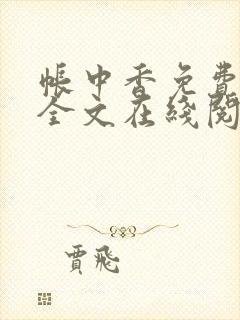 帳中香免費
全文在綫閱
賈飛